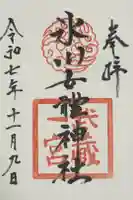 奉拝
氷川女體神社
武藏
一宮
令和七年十一月九日